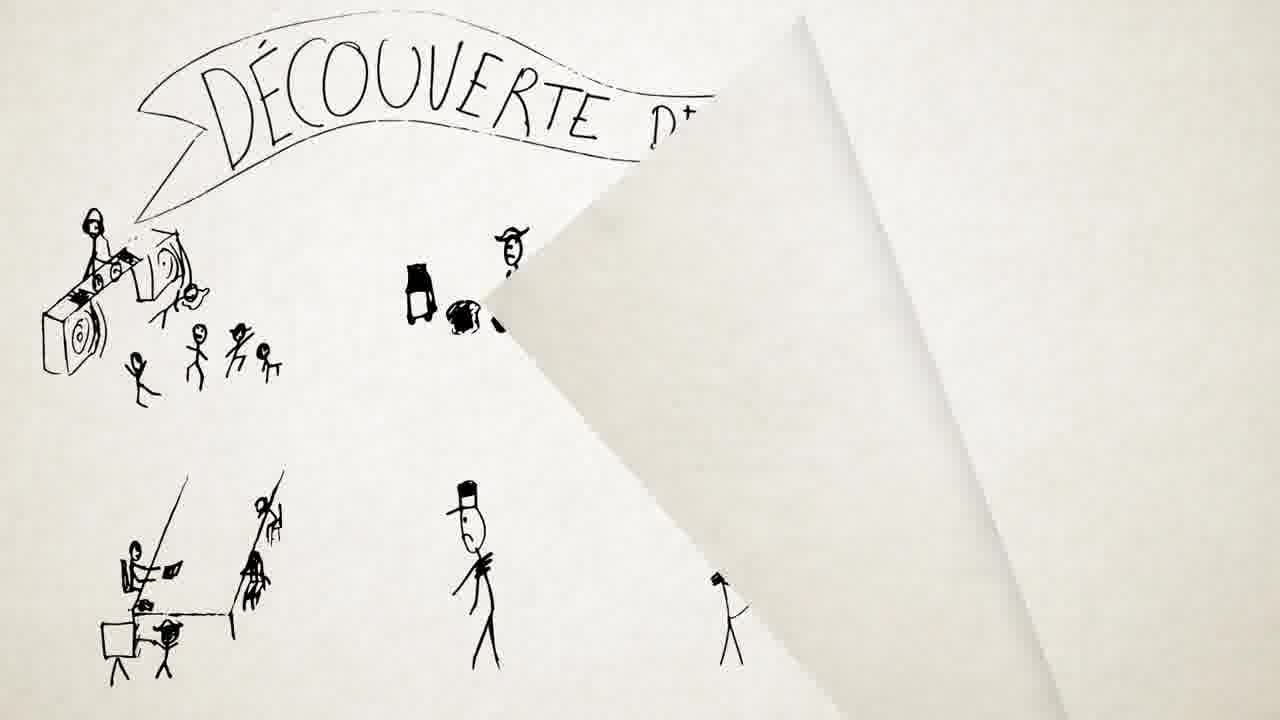 DÉCOUVERTE D'